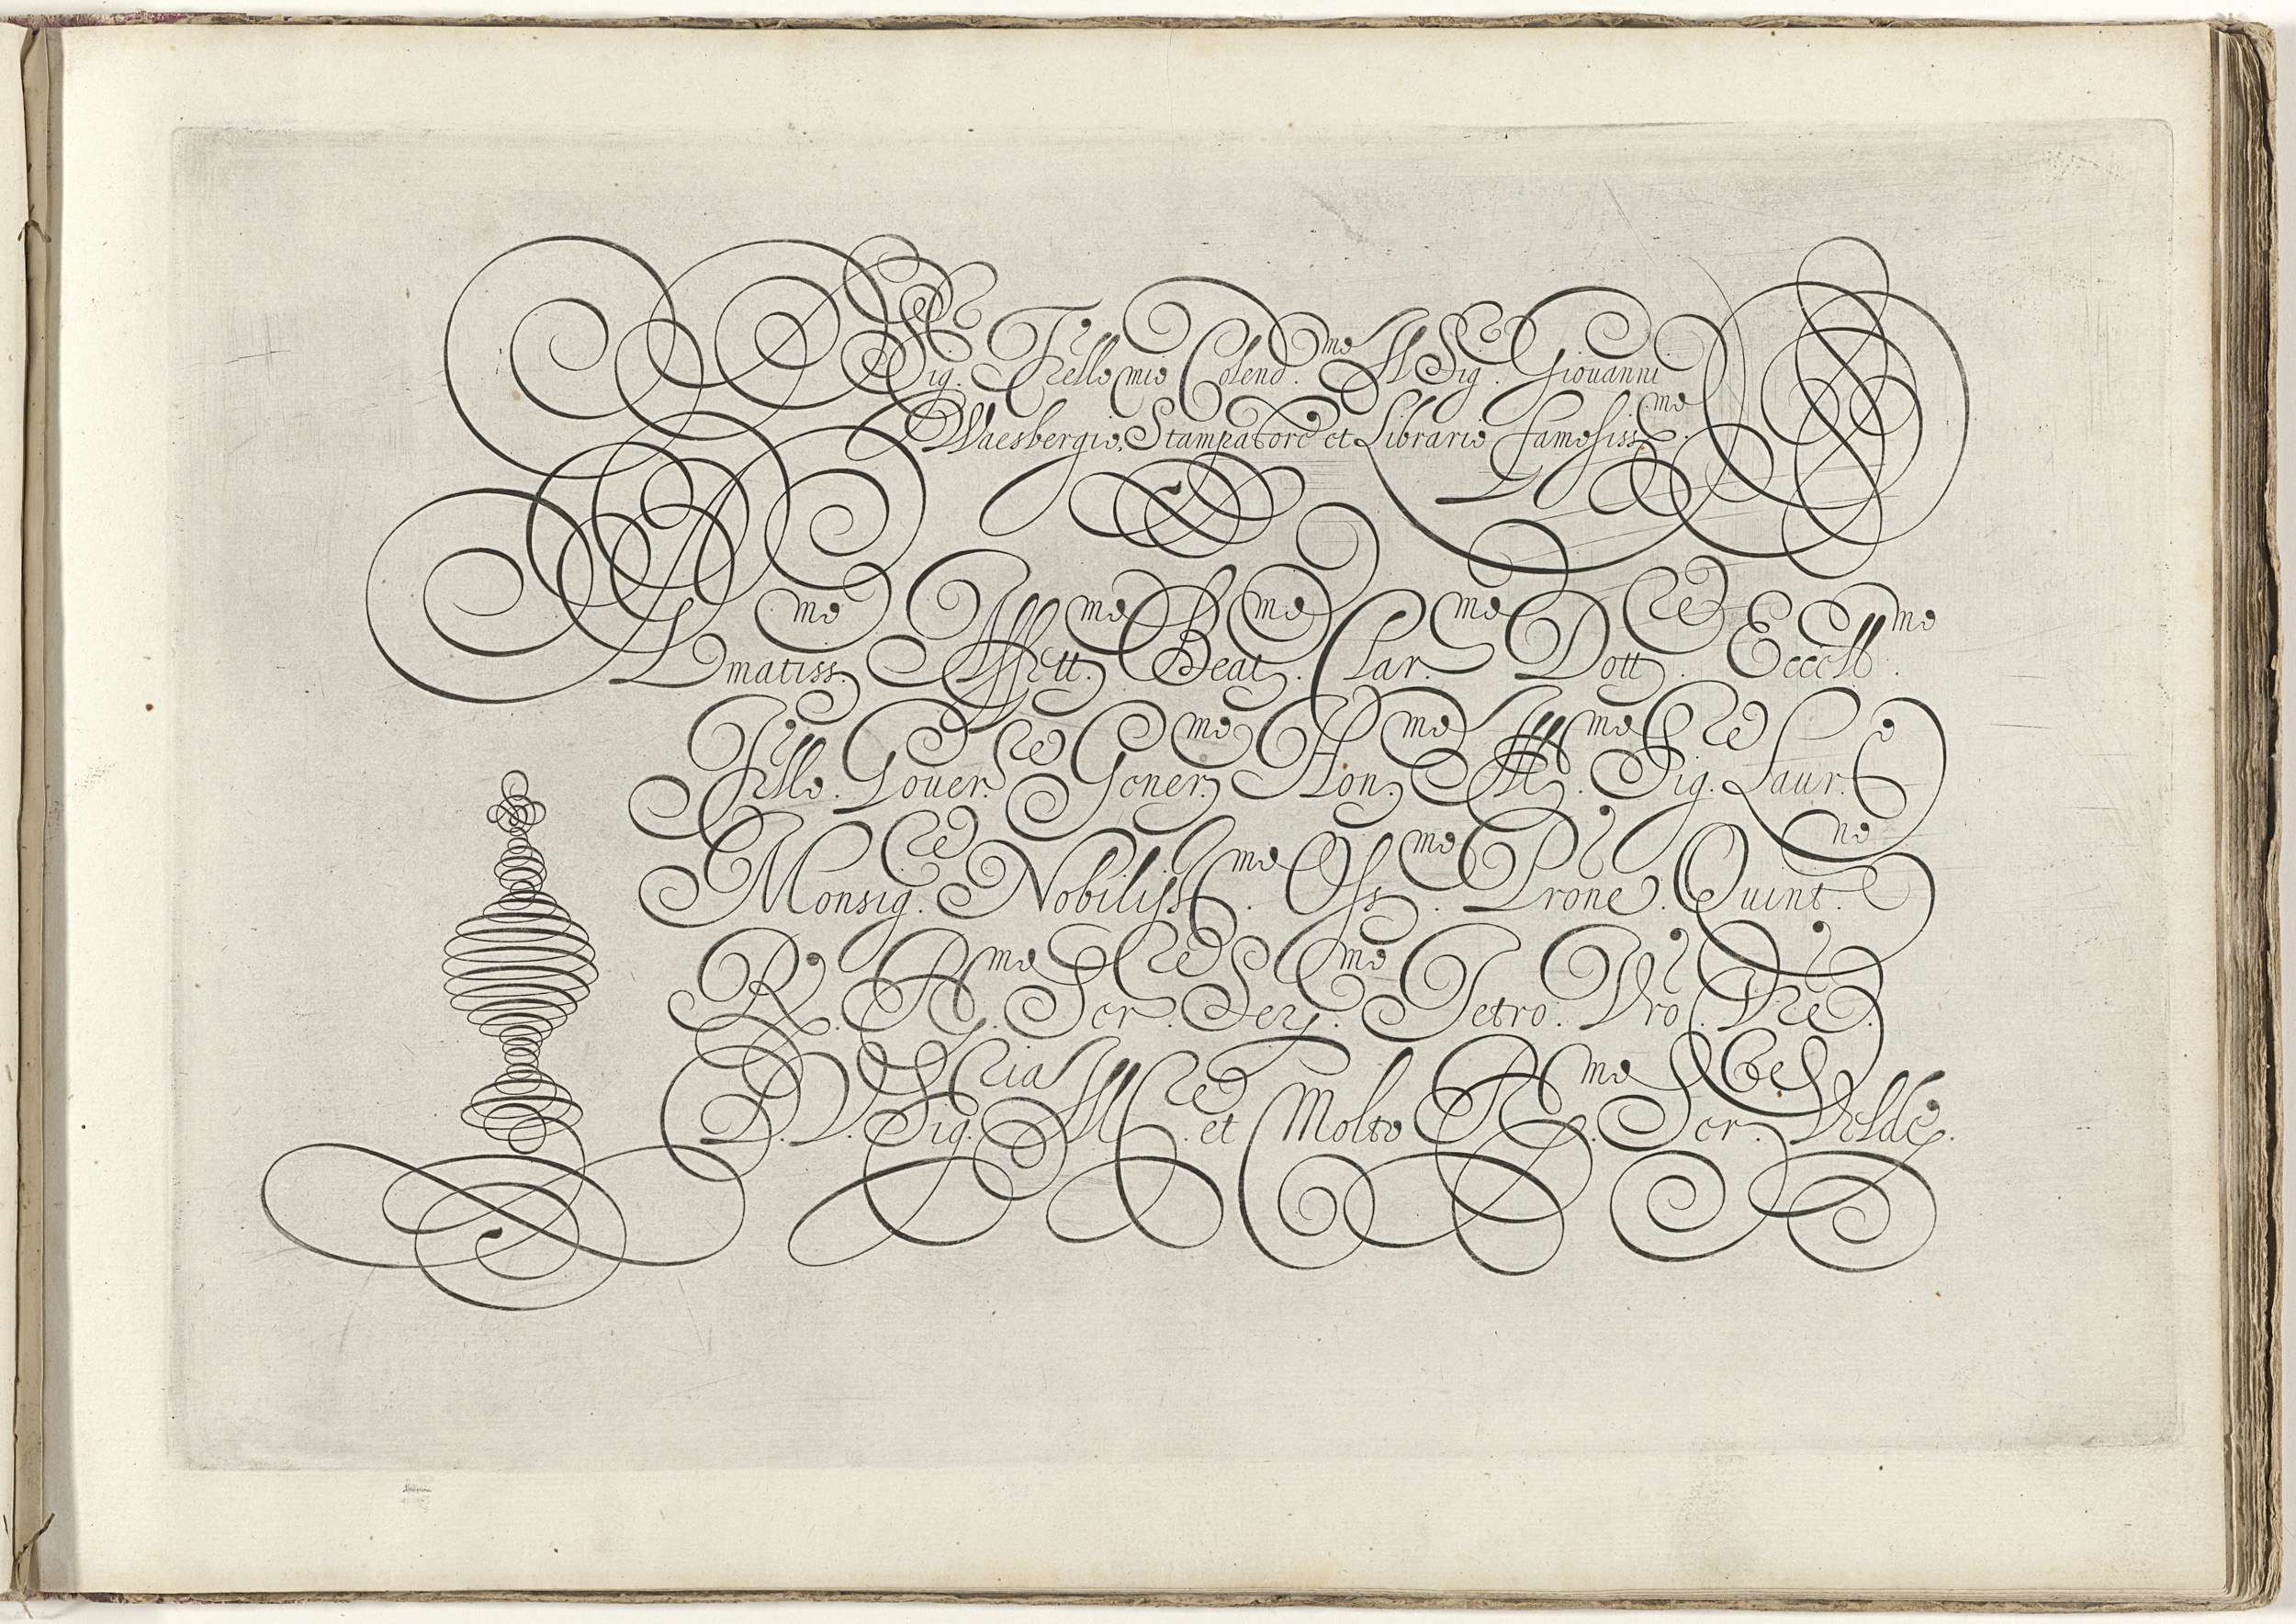 Sig. Frello mio Colend.mo Il Sig. Giouanni
Waesbergio, Stampatore et Librario famosiss.mo
Amatiss.mo Affett.mo Beat.mo Clar.mo Dott.re Eccell.mo
Illo. Gouer.re Gener.mo Hon.mo Ill.mo Sig.re Laur.no
Monsig.re Nobiliss.mo Oss.mo Prone. Quint.
R. R.mo Ser.re Ser.mo Tetro. Vro. Vre.
D. V. Sig.ria Ill.re et Molto R.mo Ser.re Velde.